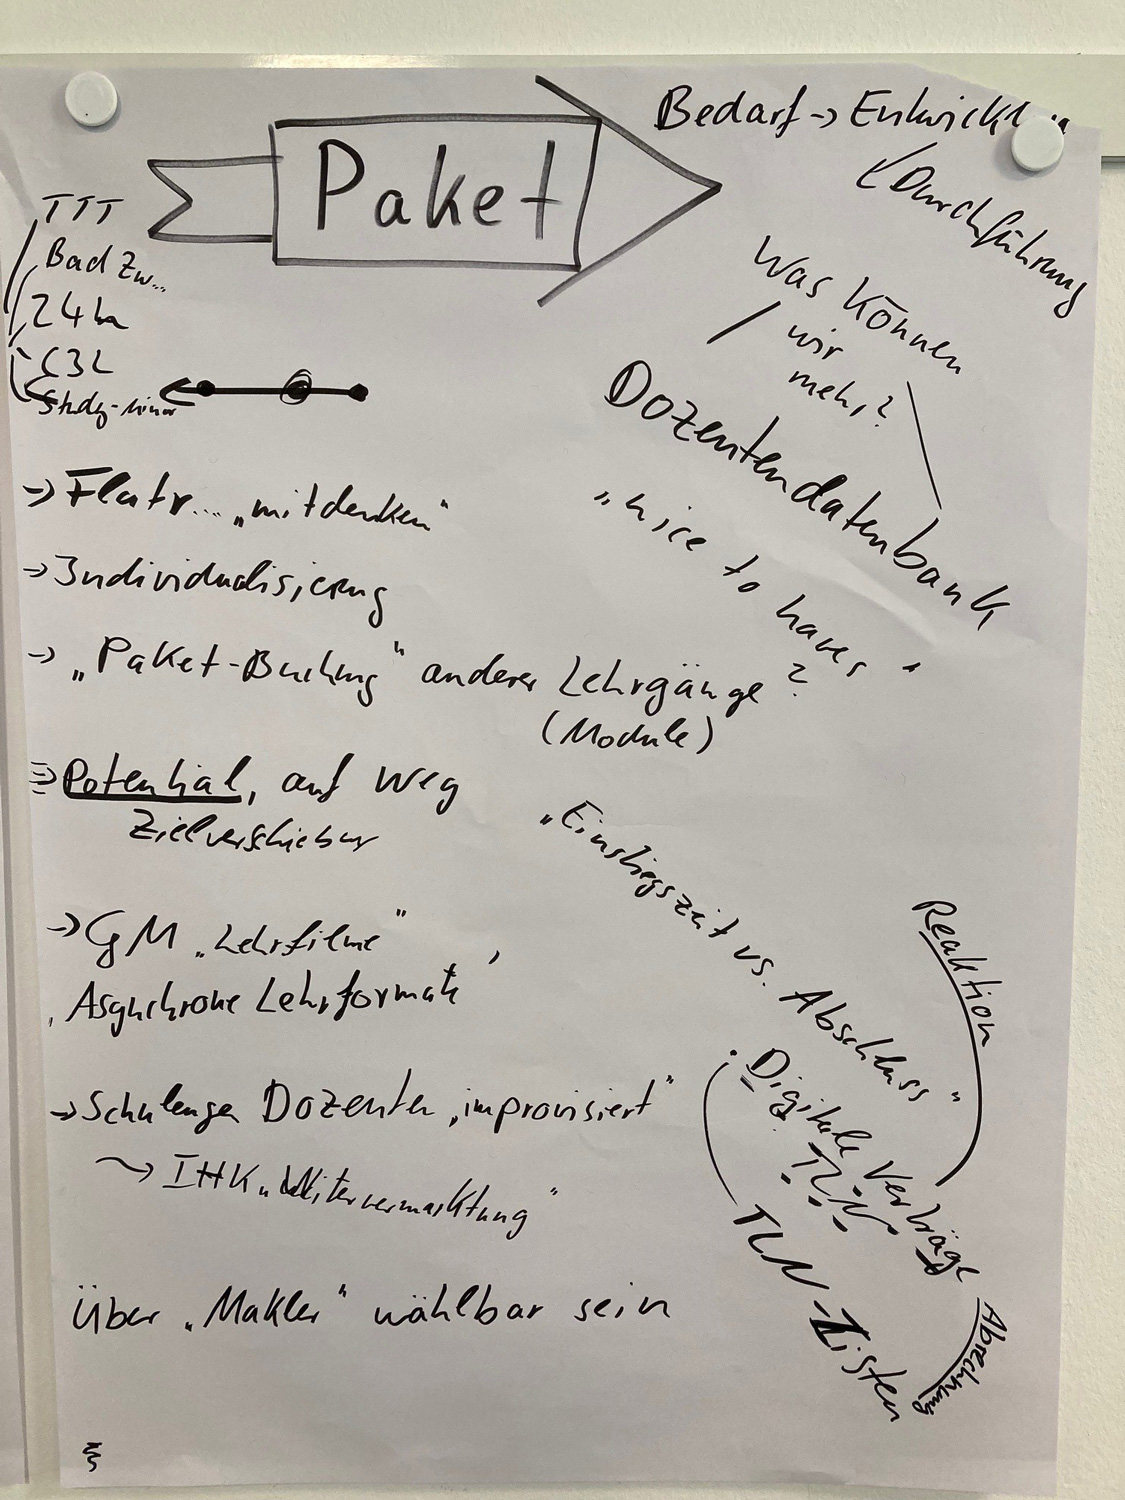 Paket
Bedarf -> Entwickl
Durchführung
TTT
Bad Zw...
24h
C3L
Was können
wir
mehr?
Dozentendatenbank
„nice to haves"
?
-> Flatr... „mitdenken"
-> Individualisierung
-> „Paket-Buchung" anderer Lehrgänge
(Module)
=> Potential, auf Weg
Zielverschiebung
„Einstiegszeit vs. Abschluss"
-> GM „Lehrfilme",
Asynchrone Lehrformate
Reaktion
Digitale Verträge
TLN
TLN-Listen
Abrechnung
-> Schulungen Dozenten „improvisiert"
~> IHK „Weitervermarktung"
Über „Makler" wählbar sein